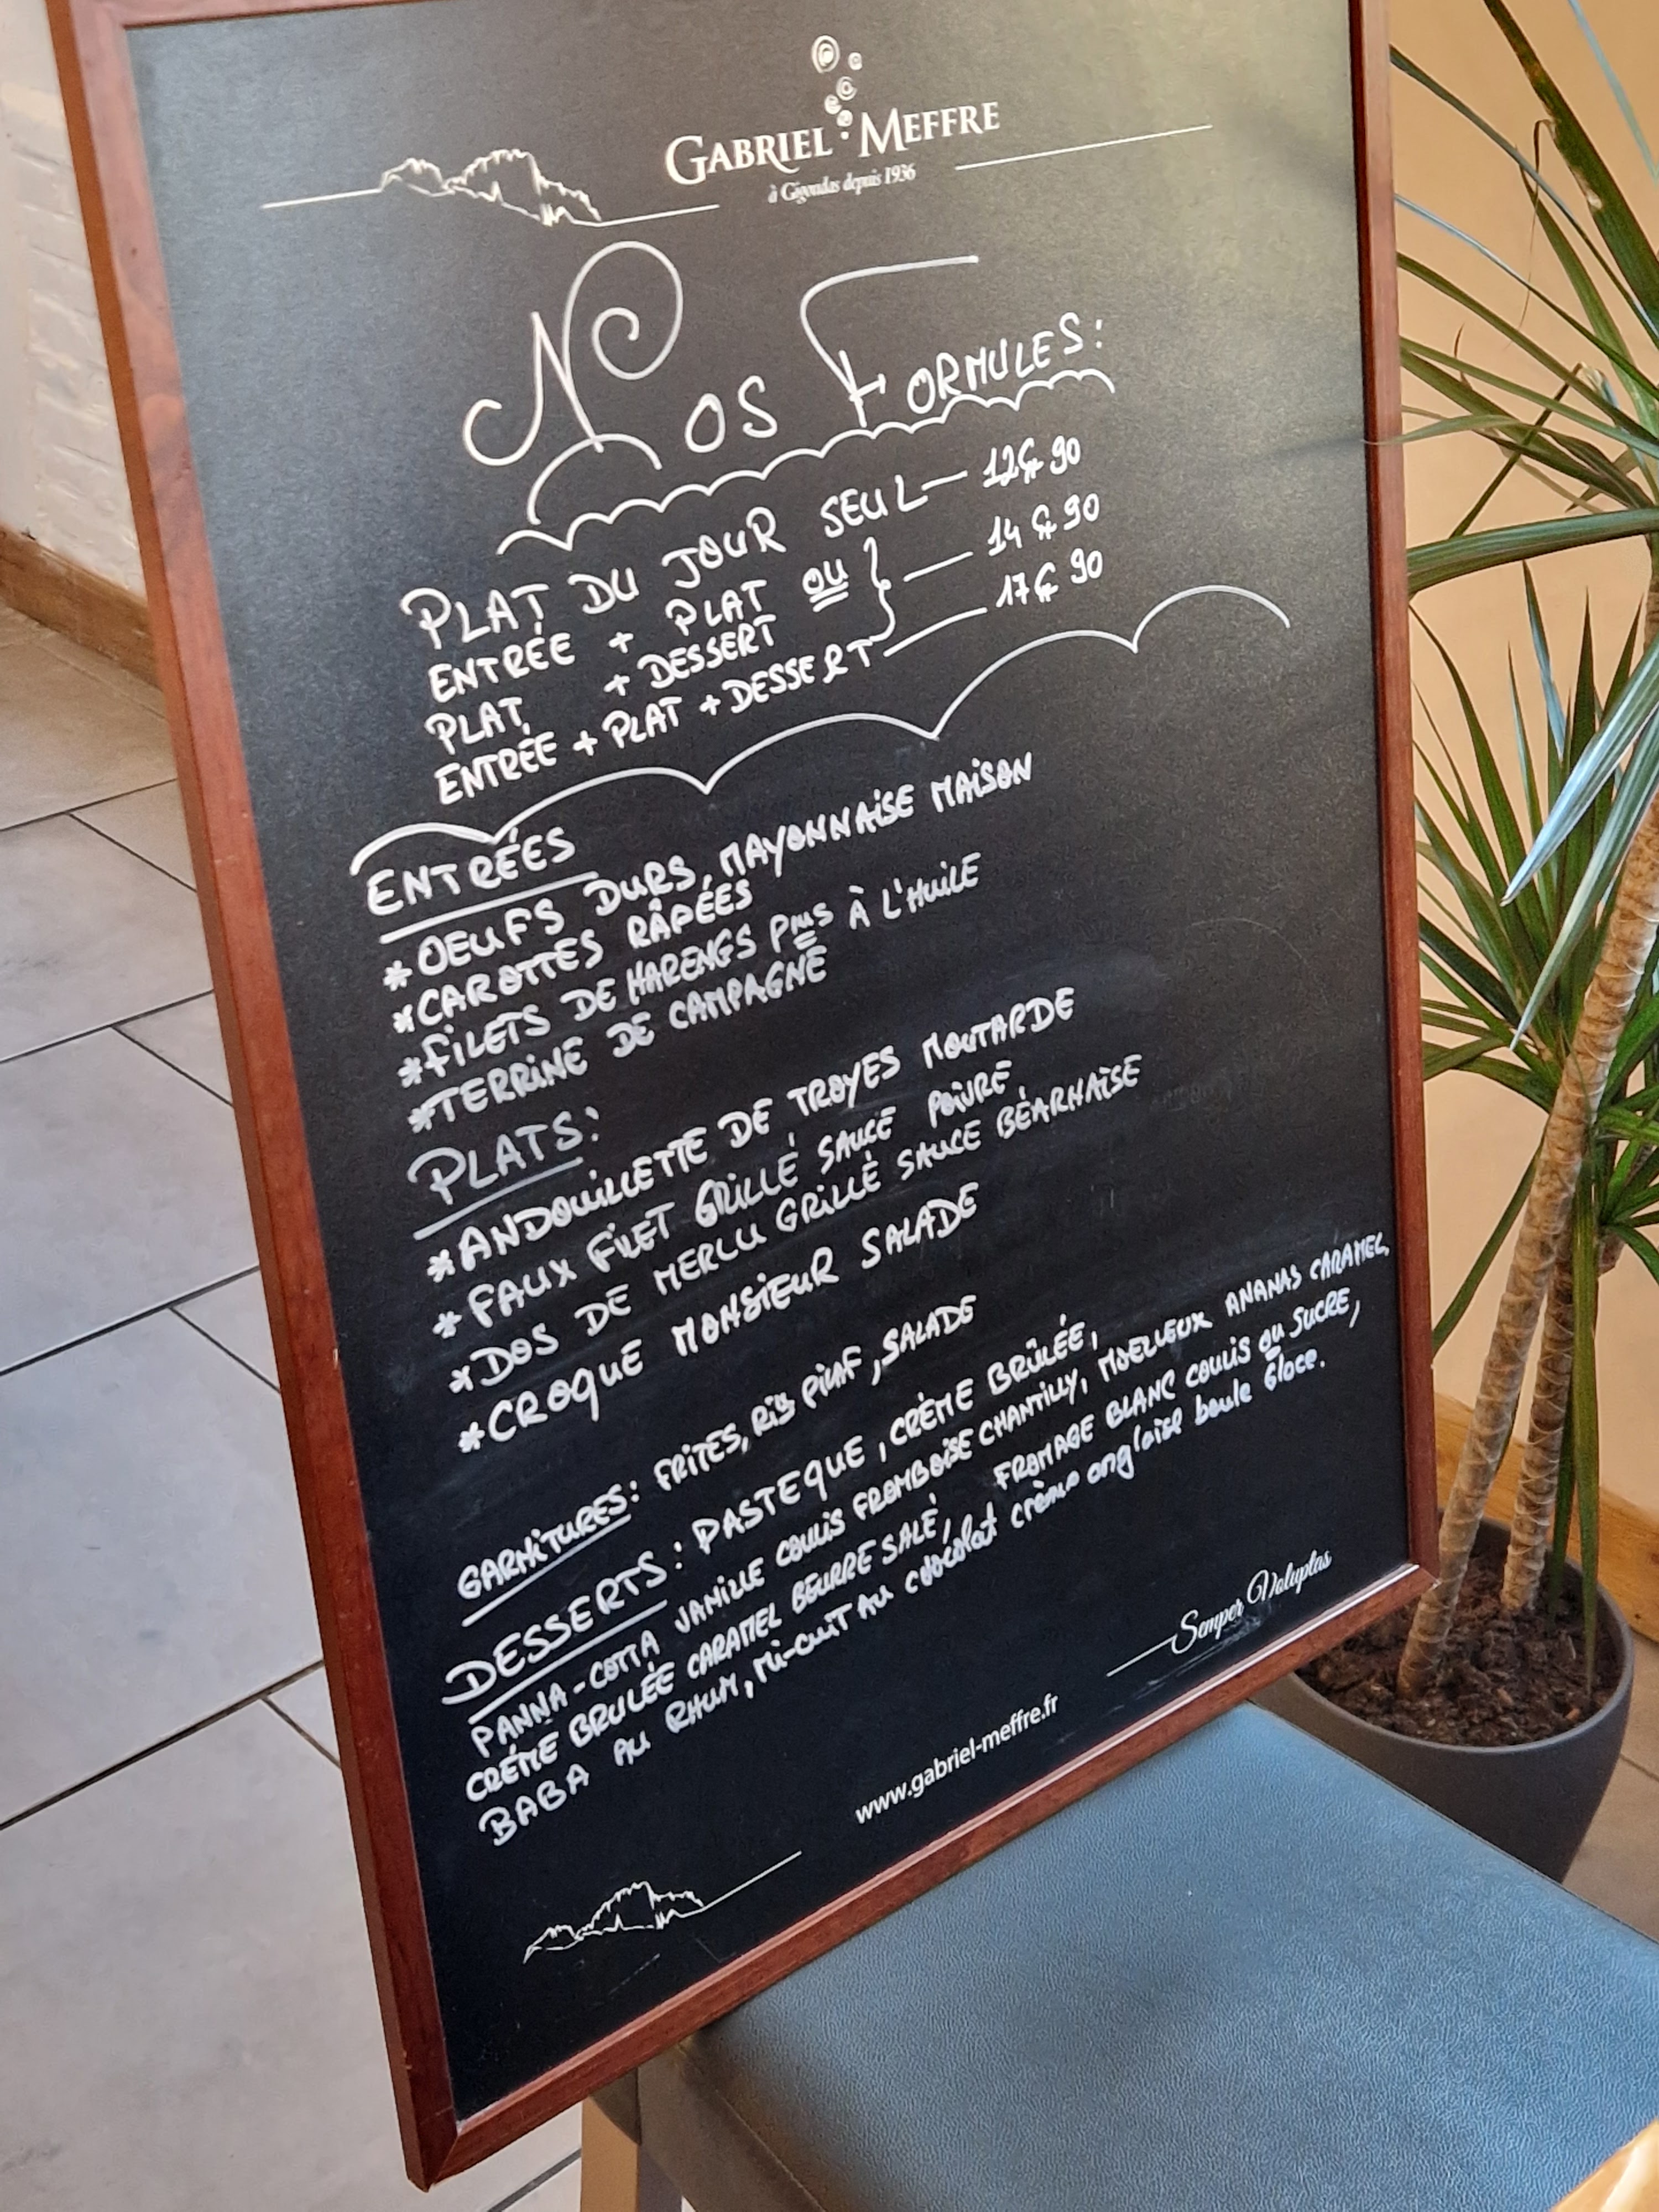 GABRIEL MEFFRE
à Gigondas depuis 1936
NOS FORMULES:
PLAT DU JOUR SEUL — 12€90
ENTRÉE + PLAT OU
PLAT + DESSERT } — 14€90
ENTRÉE + PLAT + DESSERT — 17€90
ENTRÉES
* OEUFS DURS, MAYONNAISE MAISON
* CAROTTES RÂPÉES
* FILETS DE HARENGS À L'HUILE
* TERRINE DE CAMPAGNE
PLATS:
* ANDOUILLETTE DE TROYES MOUTARDE
* FAUX FILET GRILLÉ SAUCE POIVRE
* DOS DE MERLU GRILLÉ SAUCE BÉARNAISE
* CROQUE MONSIEUR SALADE
GARNITURES: FRITES, RIZ PILAF, SALADE
DESSERTS: PASTEQUE, CRÈME BRÛLÉE,
PANNA-COTTA VANILLE COULIS FRAMBOISE CHANTILLY, MOELLEUX ANANAS CARAMEL,
CRÉME BRULÉE CARAMEL BEURRE SALÉ, FROMAGE BLANC COULIS OU SUCRE,
BABA AU RHUM, MI-CUIT AU chocolat crème anglaise boule Glace.
Semper Voluptas
www.gabriel-meffre.fr